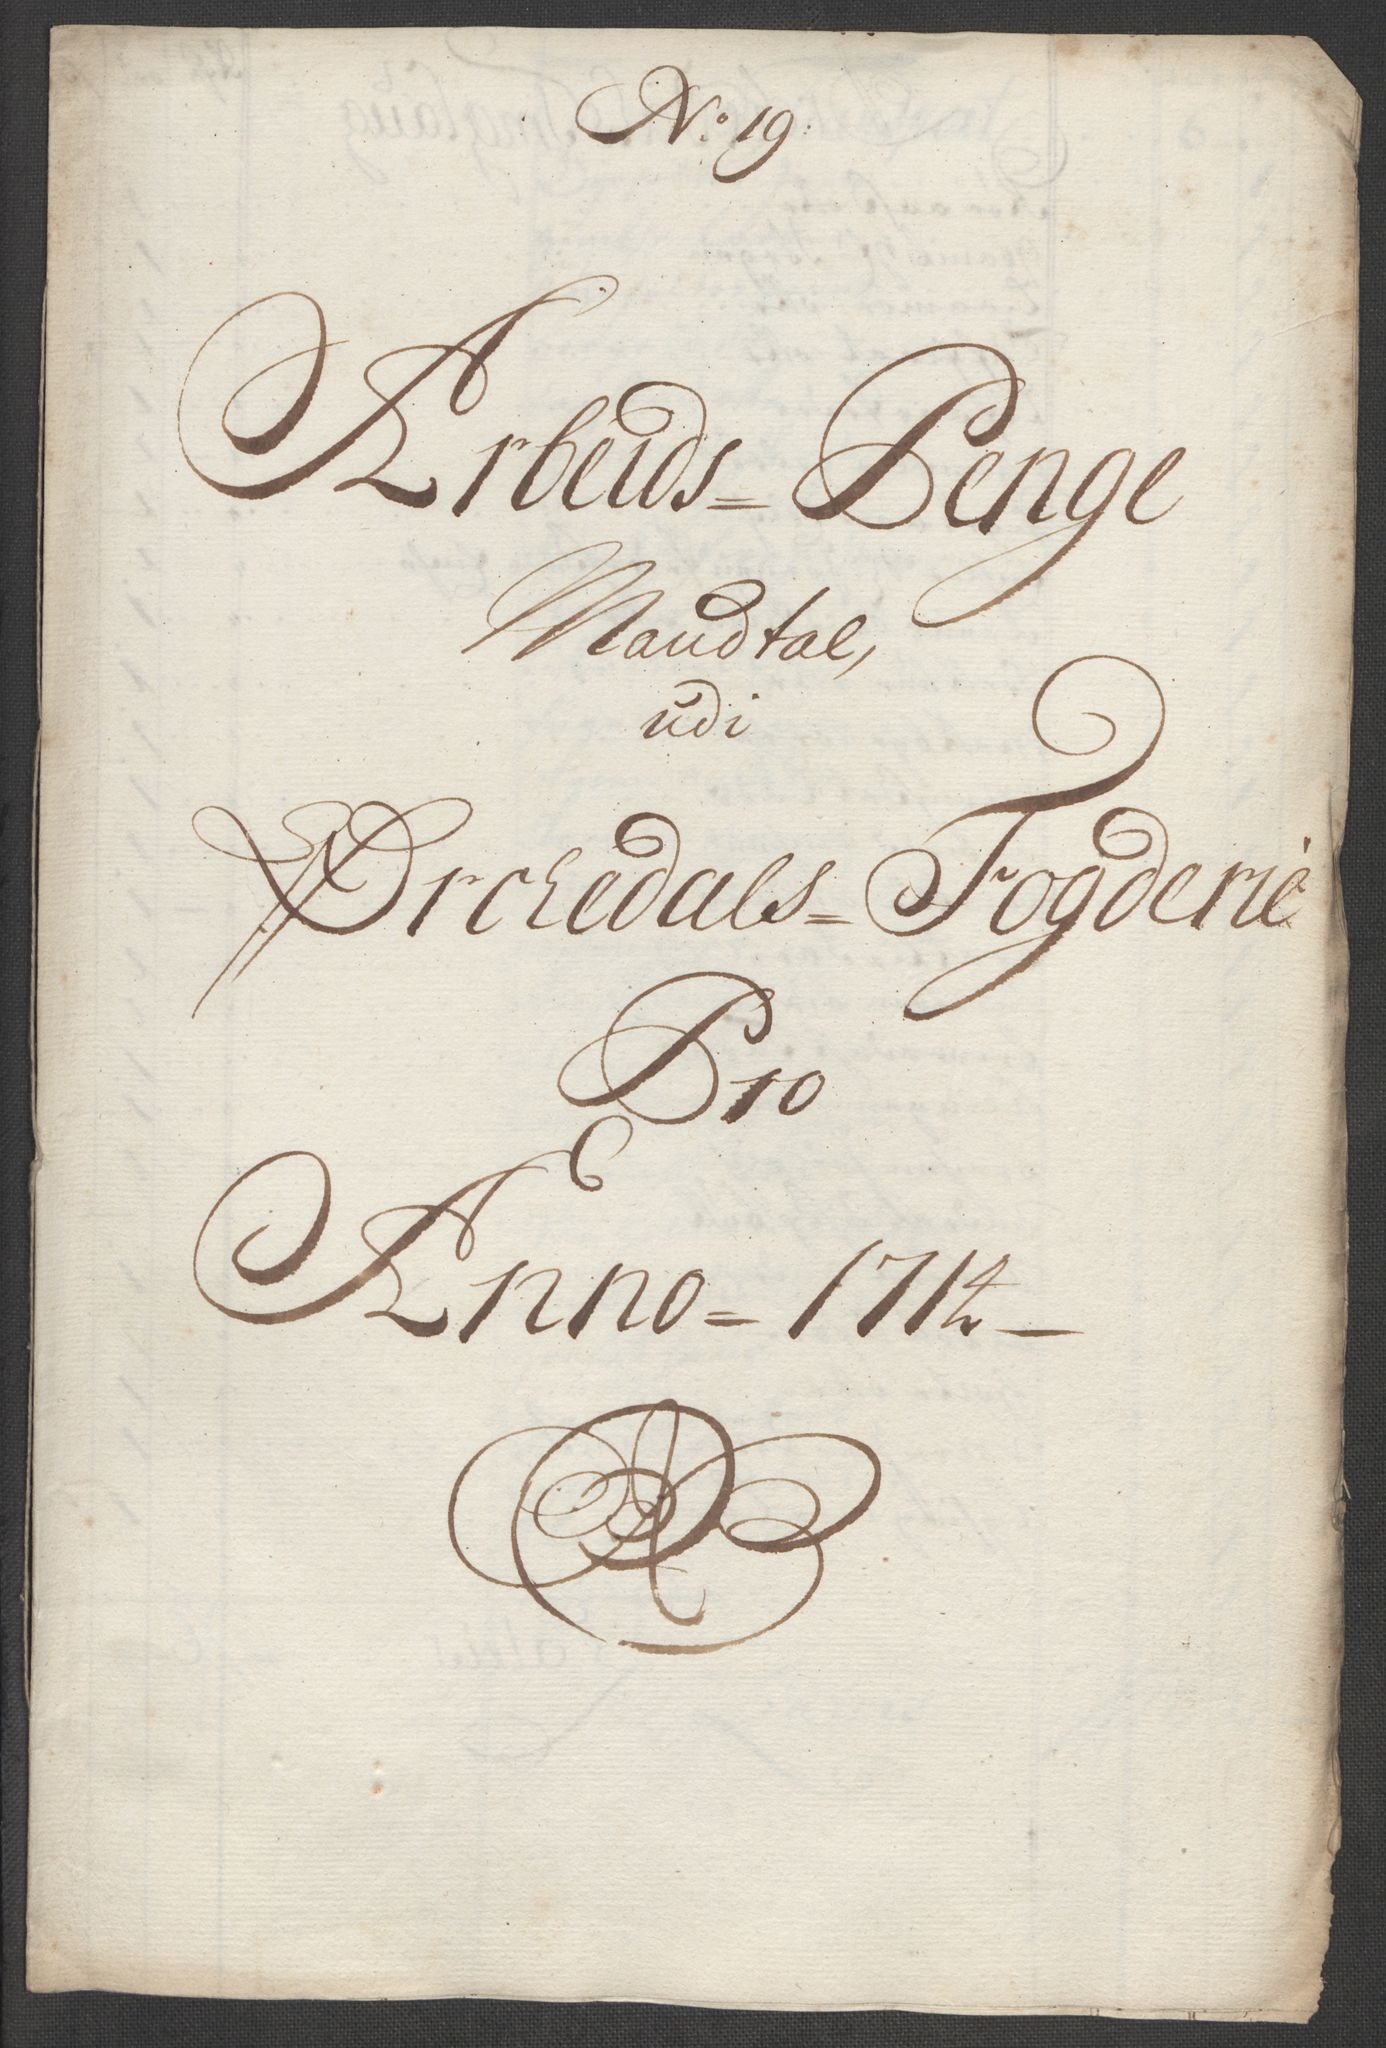 No 19.
Arbeids=Penge
Mandtal,
udi
Orchedals=Fogderie
Pro
Anno=1714